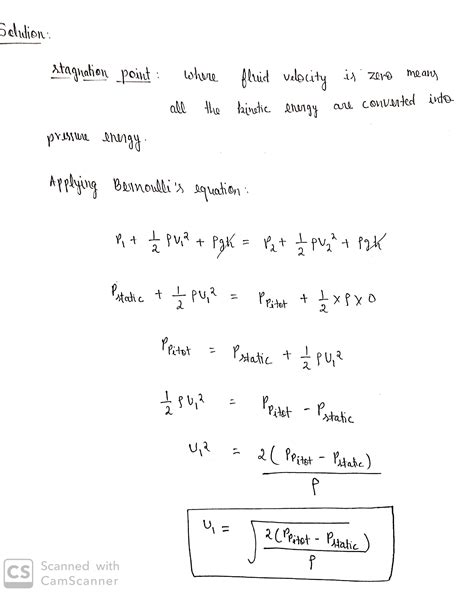 Solution:
stagnation point: where fluid velocity is zero means
all the kinetic energy are converted into
pressure energy.
Applying Bernoulli's equation:
P₁ + 1/2 ρv₁² + ρgh = P₂ + 1/2 ρv₂² + ρgh
Pstatic + 1/2 ρv₁² = Ppitot + 1/2 × ρ × 0
Ppitot = Pstatic + 1/2 ρv₁²
1/2 ρv₁² = Ppitot - Pstatic
v₁² = 2(Ppitot - Pstatic) / ρ
v₁ = √(2(Ppitot - Pstatic) / ρ)
CS Scanned with
CamScanner